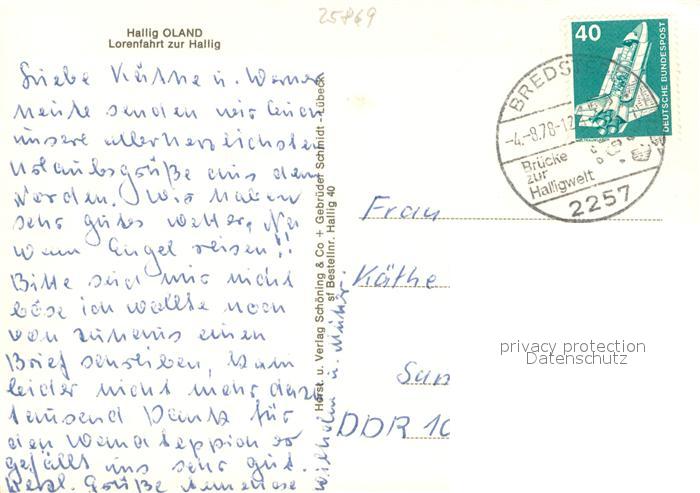 25869
Hallig OLAND
Lorenfahrt zur Hallig
Liebe Käthe u. Werner
Heute senden wir Euch
unsere allerherzlichsten
Urlaubsgrüße aus dem
Norden. Wir haben
sehr gutes Wetter, Na
wenn Engel reisen!!
Bitte seid mir nicht
böse ich wollte noch
von zuhaus einen
Brief schreiben, kam
leider nicht mehr dazu
tausend Dank für
den Wandteppich er
gefällt uns sehr gut.
Herzl. Grüße
Wilhelm u.
Horst. u. Verlag Schöning & Co + Gebrüder Schmidt - Lübeck
sf Bestellnr. Hallig 40
40
DEUTSCHE BUNDESPOST
BREDST
-4.-8.78-12
Brücke
zur
Halligwelt
2257
Frau
Käthe
DDR 10
privacy protection
Datenschutz